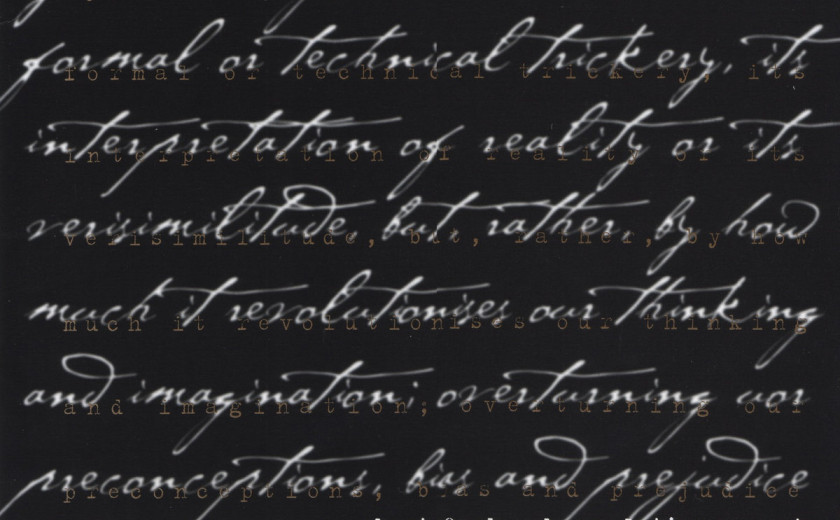 formal or technical trickery, its
interpretation of reality or its
verisimilitude, but, rather, by how
much it revolutionises our thinking
and imagination; overturning uor
preconceptions, bias and prejudice